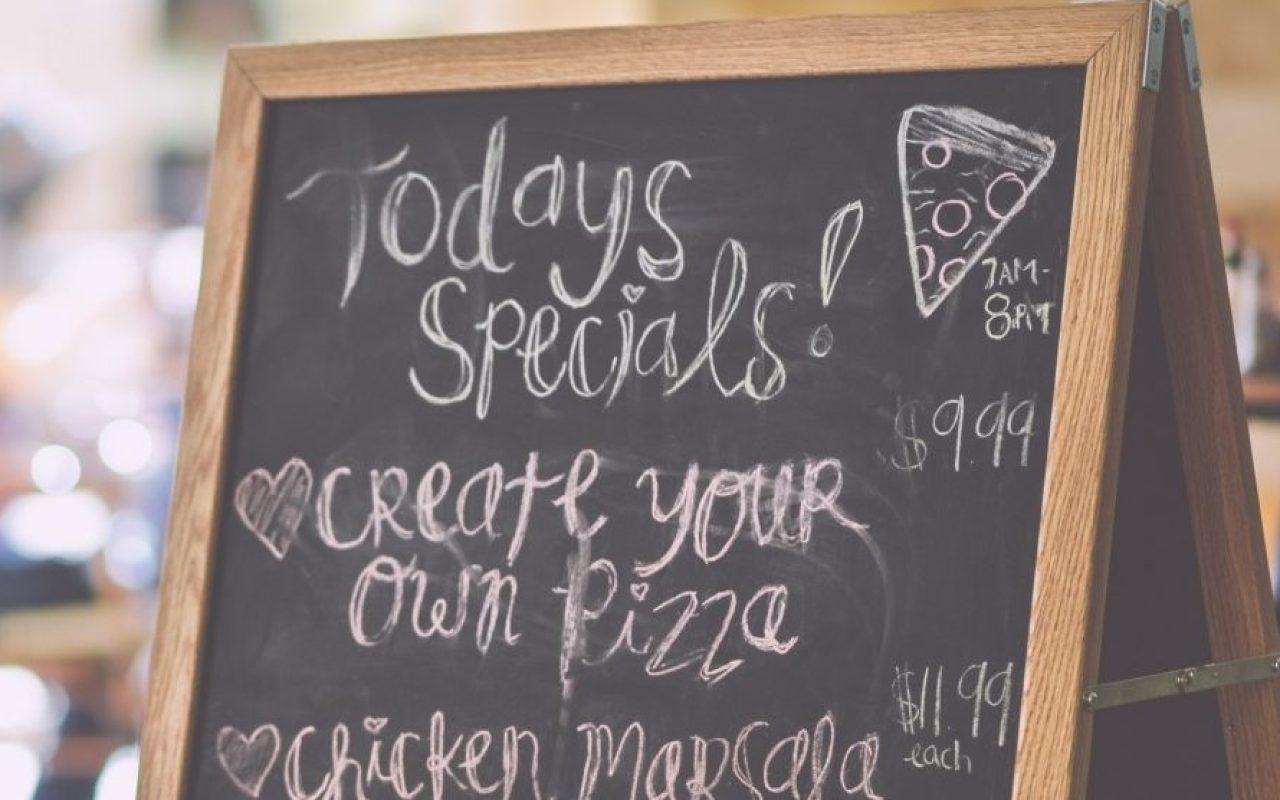 Todays
Specials!
7AM-
8PM
$9.99
Create your
Own Pizza
$11.99
each
Chicken Marsala